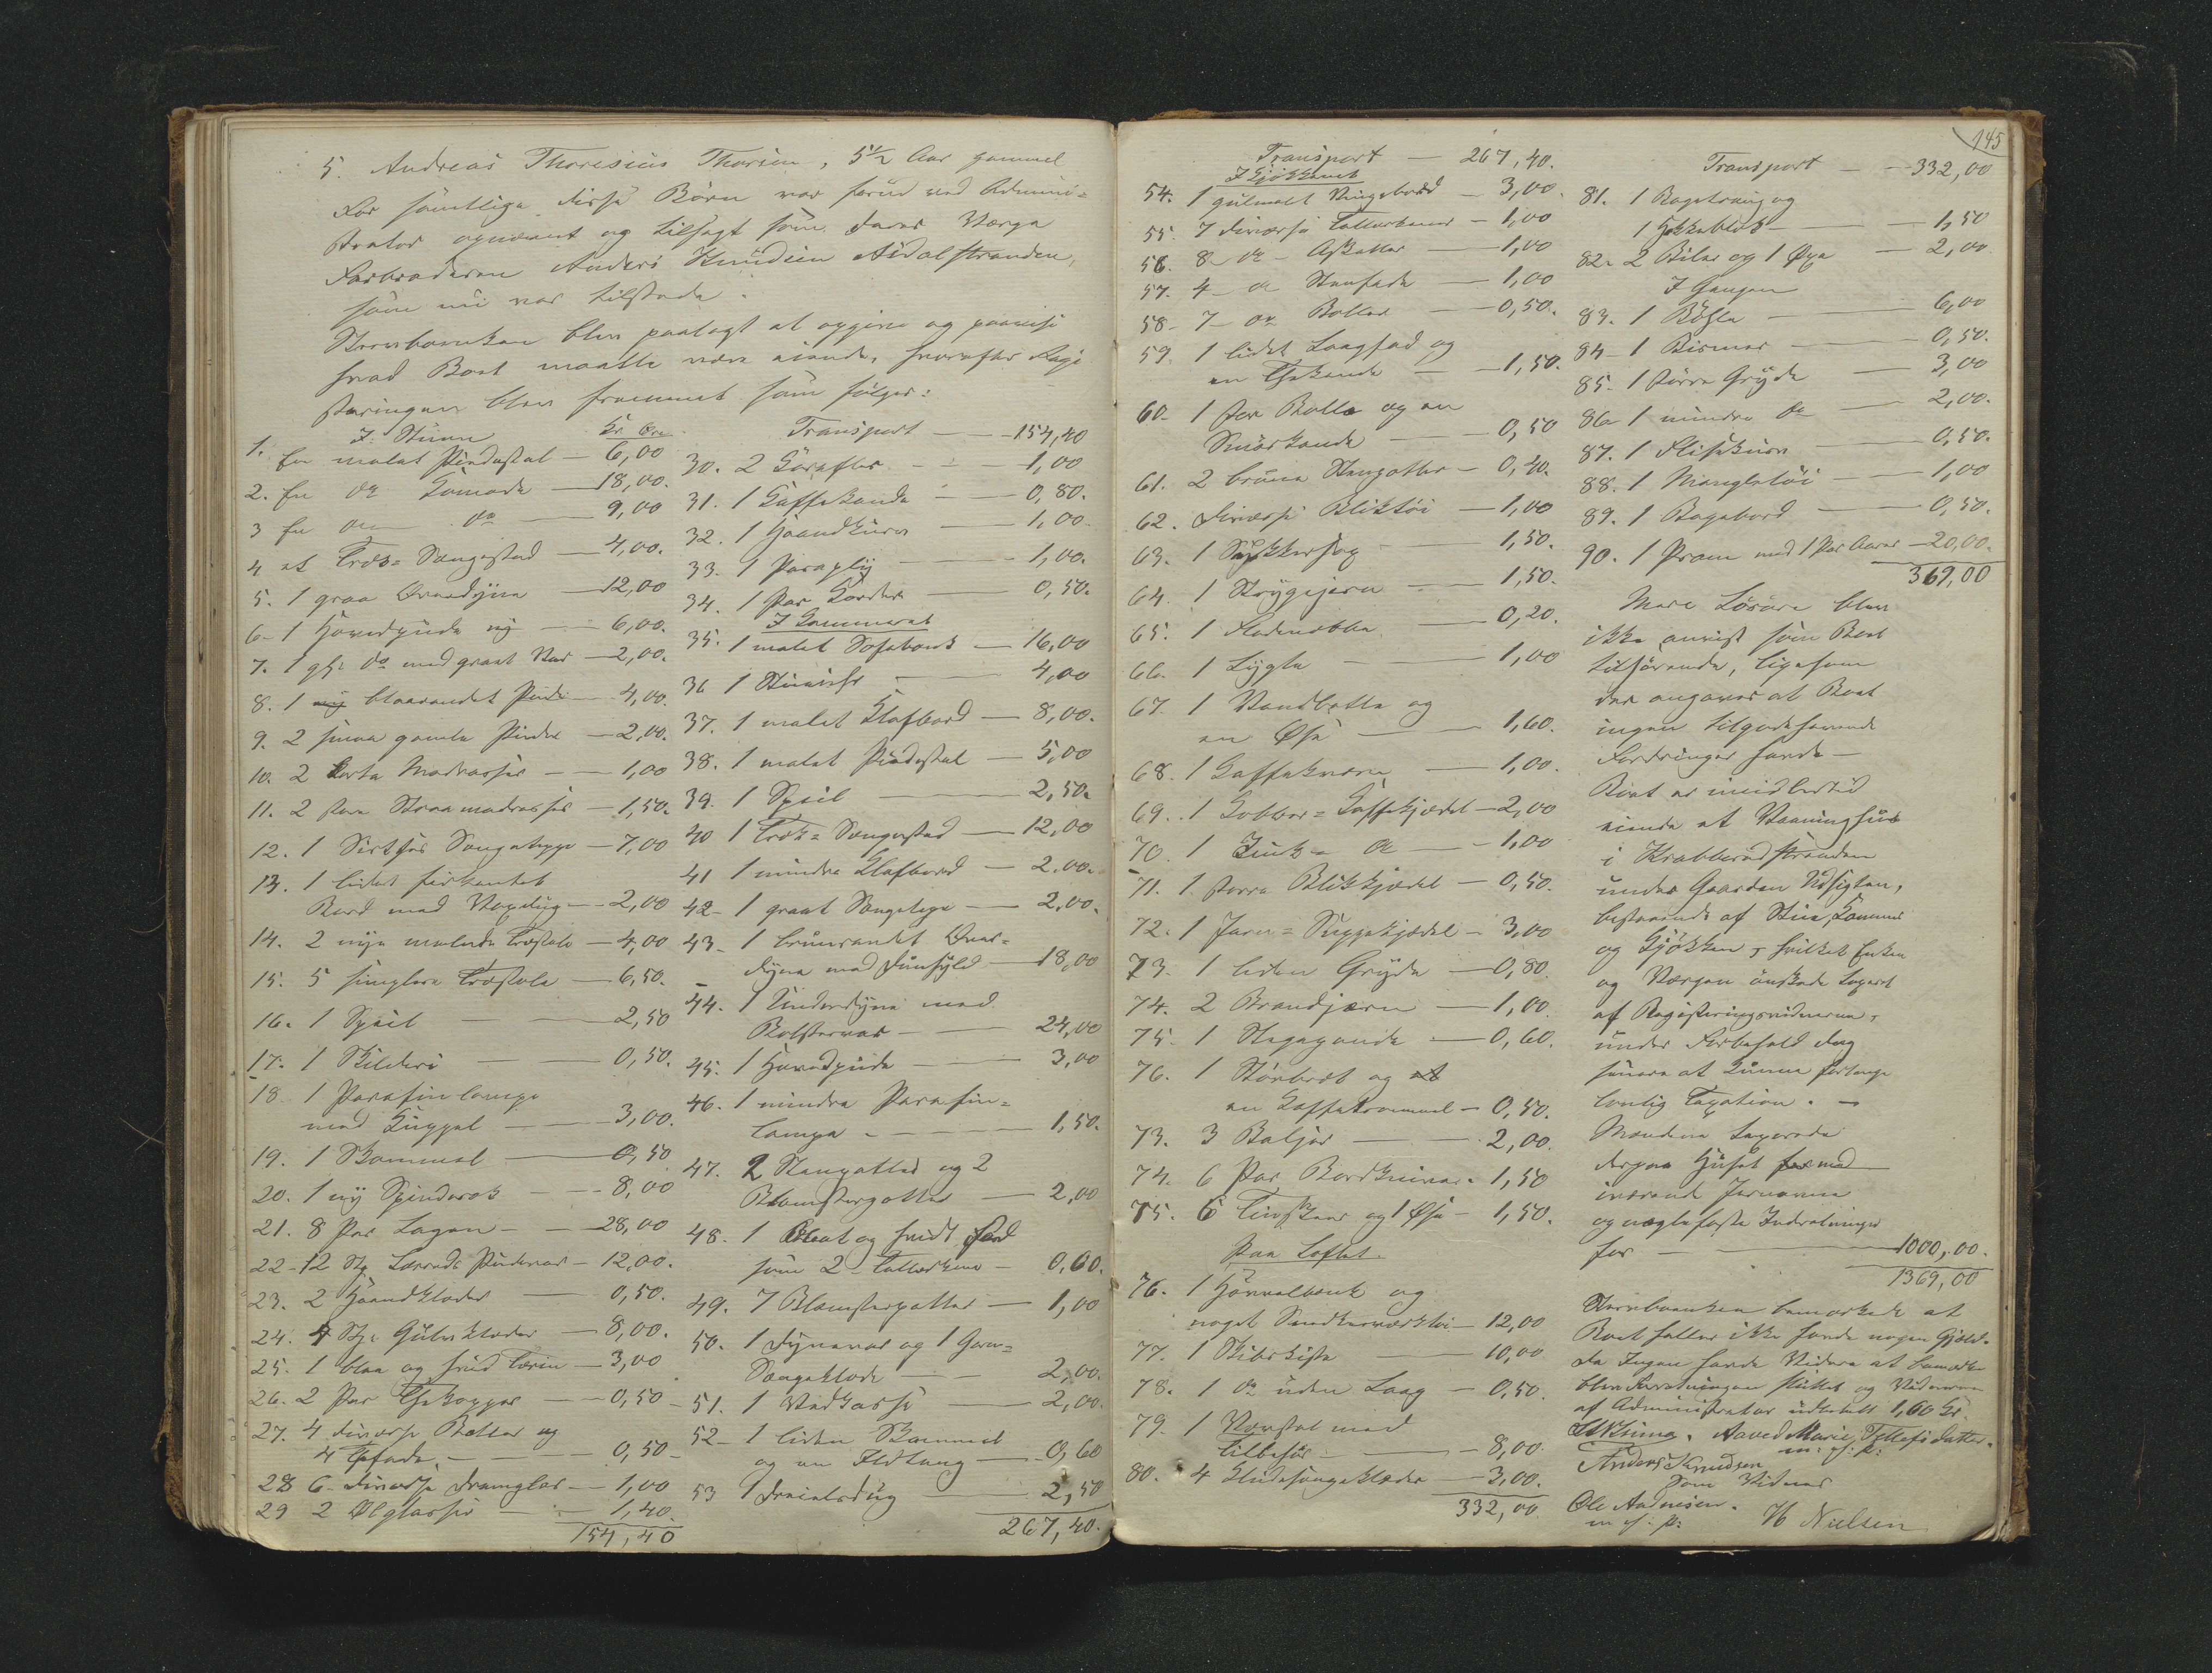 5. Andreas Thoresius Thorsen, 5 1/2 Aar gammel
For samtlige disse Børn var forud ved Admini-
strator opnævnt og tilsagt som deres Værge
Farbroderen Anders Knudsen Aidalstranden,
som nu var tilstede.
Stervboenken blev paalagt at opgive og paavise
hvad Boet maatte være eiende, hvorefter Regi-
streringen blev fremmet som følger:
I Stuen Kr Øre
1. En malet Pindestol — 6,00
2. En do Komode — 18,00.
3 En do — 9,00
4 et Træs-Sengested — 4,00.
5. 1 graa Overdyne — 12,00
6- 1 Hovedpude ny — 6,00.
7. 1 gl. do med graat Var — 2,00.
8. 1 blaarandet Pude — 4,00.
9. 2 smaa gamle Puder — 2,00.
10. 2 korte Madrasser — 1,00
11. 2 store Straamadrasser — 1,50.
12. 1 Sirtses Sengeteppe — 7,00
13. 1 lidet firkantet
Bord med Voxdug — 2,00
14. 2 nye malede Træstole — 4,00
15. 5 simplere Træstole — 6,50.
16. 1 Speil — 2,50
17. 1 Skilderi — 0,50.
18 1 Parafinlampe
med Kuppel — 3,00.
19. 1 Skammel — 0,50
20. 1 ny Spinderok — 8,00
21. 8 Par Lagen — 28,00
22- 12 Stk Lærreds Pudevar — 12,00.
23. 2 Haandklæder — 0,50.
24. 4 Stk Gulvklæder — 8,00.
25. 1 blaa og hvid Terin — 3,00
26. 2 Par Thekopper — 0,50
27. 4 diverse Boller og
4 Fade — 0,50
28 6 diverse Dramglas — 1,00
29 2 Ølglasser — 1,40.
154,40
Transport — 154,40
30. 2 Karafler — 1,00
31. 1 Kaffekande — 0,80.
32. 1 Haandkurv — 1,00
33. 1 Paraply — 1,00.
34. 1 Par Karder — 0,50.
I Kammeret
35. 1 malet Sofabænk — 16,00
36 1 Stueuhr — 4,00
37. 1 malet Klafbord — 8,00.
38. 1 malet Pindestol — 5,00
39. 1 Speil — 2,50.
40 1 Træk-Sengested — 12,00
41 1 mindre Klafbord — 2,00.
42- 1 graat Sengeteppe — 2,00.
43- 1 brunrandet Over-
dyne med Dunfyld — 18,00
44. 1 Underdyne med
Bolstervar — 24,00
45. 1 Hovedpude — 3,00
46. 1 mindre Parafin-
lampe — 1,50.
47. 2 Stenpotter og 2
Blomsterpotter — 2,00
48. 1 blaat og hvidt Fad
som 2 Tallerkene — 0,60.
49. 7 Blomsterpotter — 1,00
50. 1 Dynevar og 1
Sengeklæde — 2,00.
51. 1 Vedkasse — 2,00.
52- 1 liden Skammel
og en Ildtang — 0,60
53 1 Dreielsdug — 2,50
267,40.
145
Transport — 267,40.
I Kjøkkenet
54. 1 gulmalt Ringebord — 3,00.
55. 7 diverse Tallerkener — 1,00
56. 8 do Asketter — 1,00
57. 4 do Stenfade — 1,00
58- 7 do Boller — 0,50.
59. 1 lidet Laagfad og
en Thekande — 1,50.
60. 1 stor Bolle og en
Smørkande — 0,50
61. 2 brune Stenpotter — 0,40.
62. diverse Bliktøi — 1,00
63. 1 Sukkersax — 1,50.
64. 1 Strygejern — 1,50.
65. 1 Flødenebbe — 0,20.
66. 1 Lygte — 1,00
67. 1 Vandbøtte og
en Øse — 1,60.
68. 1 Kaffekværn — 1,00.
69. 1 Kobber-Kaffekjedel — 2,00
70. 1 Zink- do — 1,00
71. 1 større Blikkjedel — 0,50.
72. 1 Jern-Suppekjedel — 3,00
73. 1 liden Gryde — 0,80.
74. 2 Brandjern — 1,00.
75. 1 Stegepande — 0,60.
76. 1 Skærbræt og
en Kaffetrommel — 0,50.
73. 3 Baljer — 2,00.
74. 6 Par Bordknive — 1,50
75. 6 Tinskeer og 1 Øse — 1,50.
Paa Loftet.
76. 1 Høvelbænk og
noget Snedkerværktøi — 12,00
77. 1 Skibskiste — 10,00
78. 1 do uden Laag — 0,50.
79. 1 Vævstol med
Tilbehør — 8,00.
80. 4 Kludesengeklæder — 3,00.
332,00
Transport — 332,00
81. 1 Bagetraug og
1 Hakkeblok — 1,50
82. 2 Biler og 1 Øxe — 2,00
I Gangen
83. 1 Bøsse — 6,00
84- 1 Bismer — 0,50.
85. 1 større Gryde — 3,00
86 1 mindre do — 2,00.
87. 1 Flisekurv — 0,50.
88. 1 Mangletøi — 1,00
89. 1 Bagebord — 0,50.
90. 1 Pram med 1 Par Aarer — 20,00.
369,00
Mere Løsøre blev
ikke anvist som Boet
tilhørende, ligesom
der angaves at Boet
ingen tilgodehavende
Fordringer havde —
Boet er imidlertid
eiende et Vaaningshus
i Krabberødstranden
under Gaarden Udsigten,
bestaaende af Stue, Kammer
og Kjøkken, hvilket Enken
og Værgen ønskede taxeret
af Registreringsvidnerne,
under Forbehold dog
senere at kunne forlange
lovlig Taxation. —
Mændene taxerede
derpaa Huset med
iværende Jernovne
og naglefaste Indretninger
for — 1000,00.
1369,00
Stervboenken bemærkede at
Boet heller ikke havde nogen Gjæld.
Da Ingen havde Videre at bemærke
blev Forretningen sluttet og Vidnerne
af Administrator udbetalt 1,60 Kr.
Aaved Marie Tellefsdatter.
m. f. P.
Anders Knudsen
Som Vidner
Ole Andresen.
m. f. P.
H Nielsen